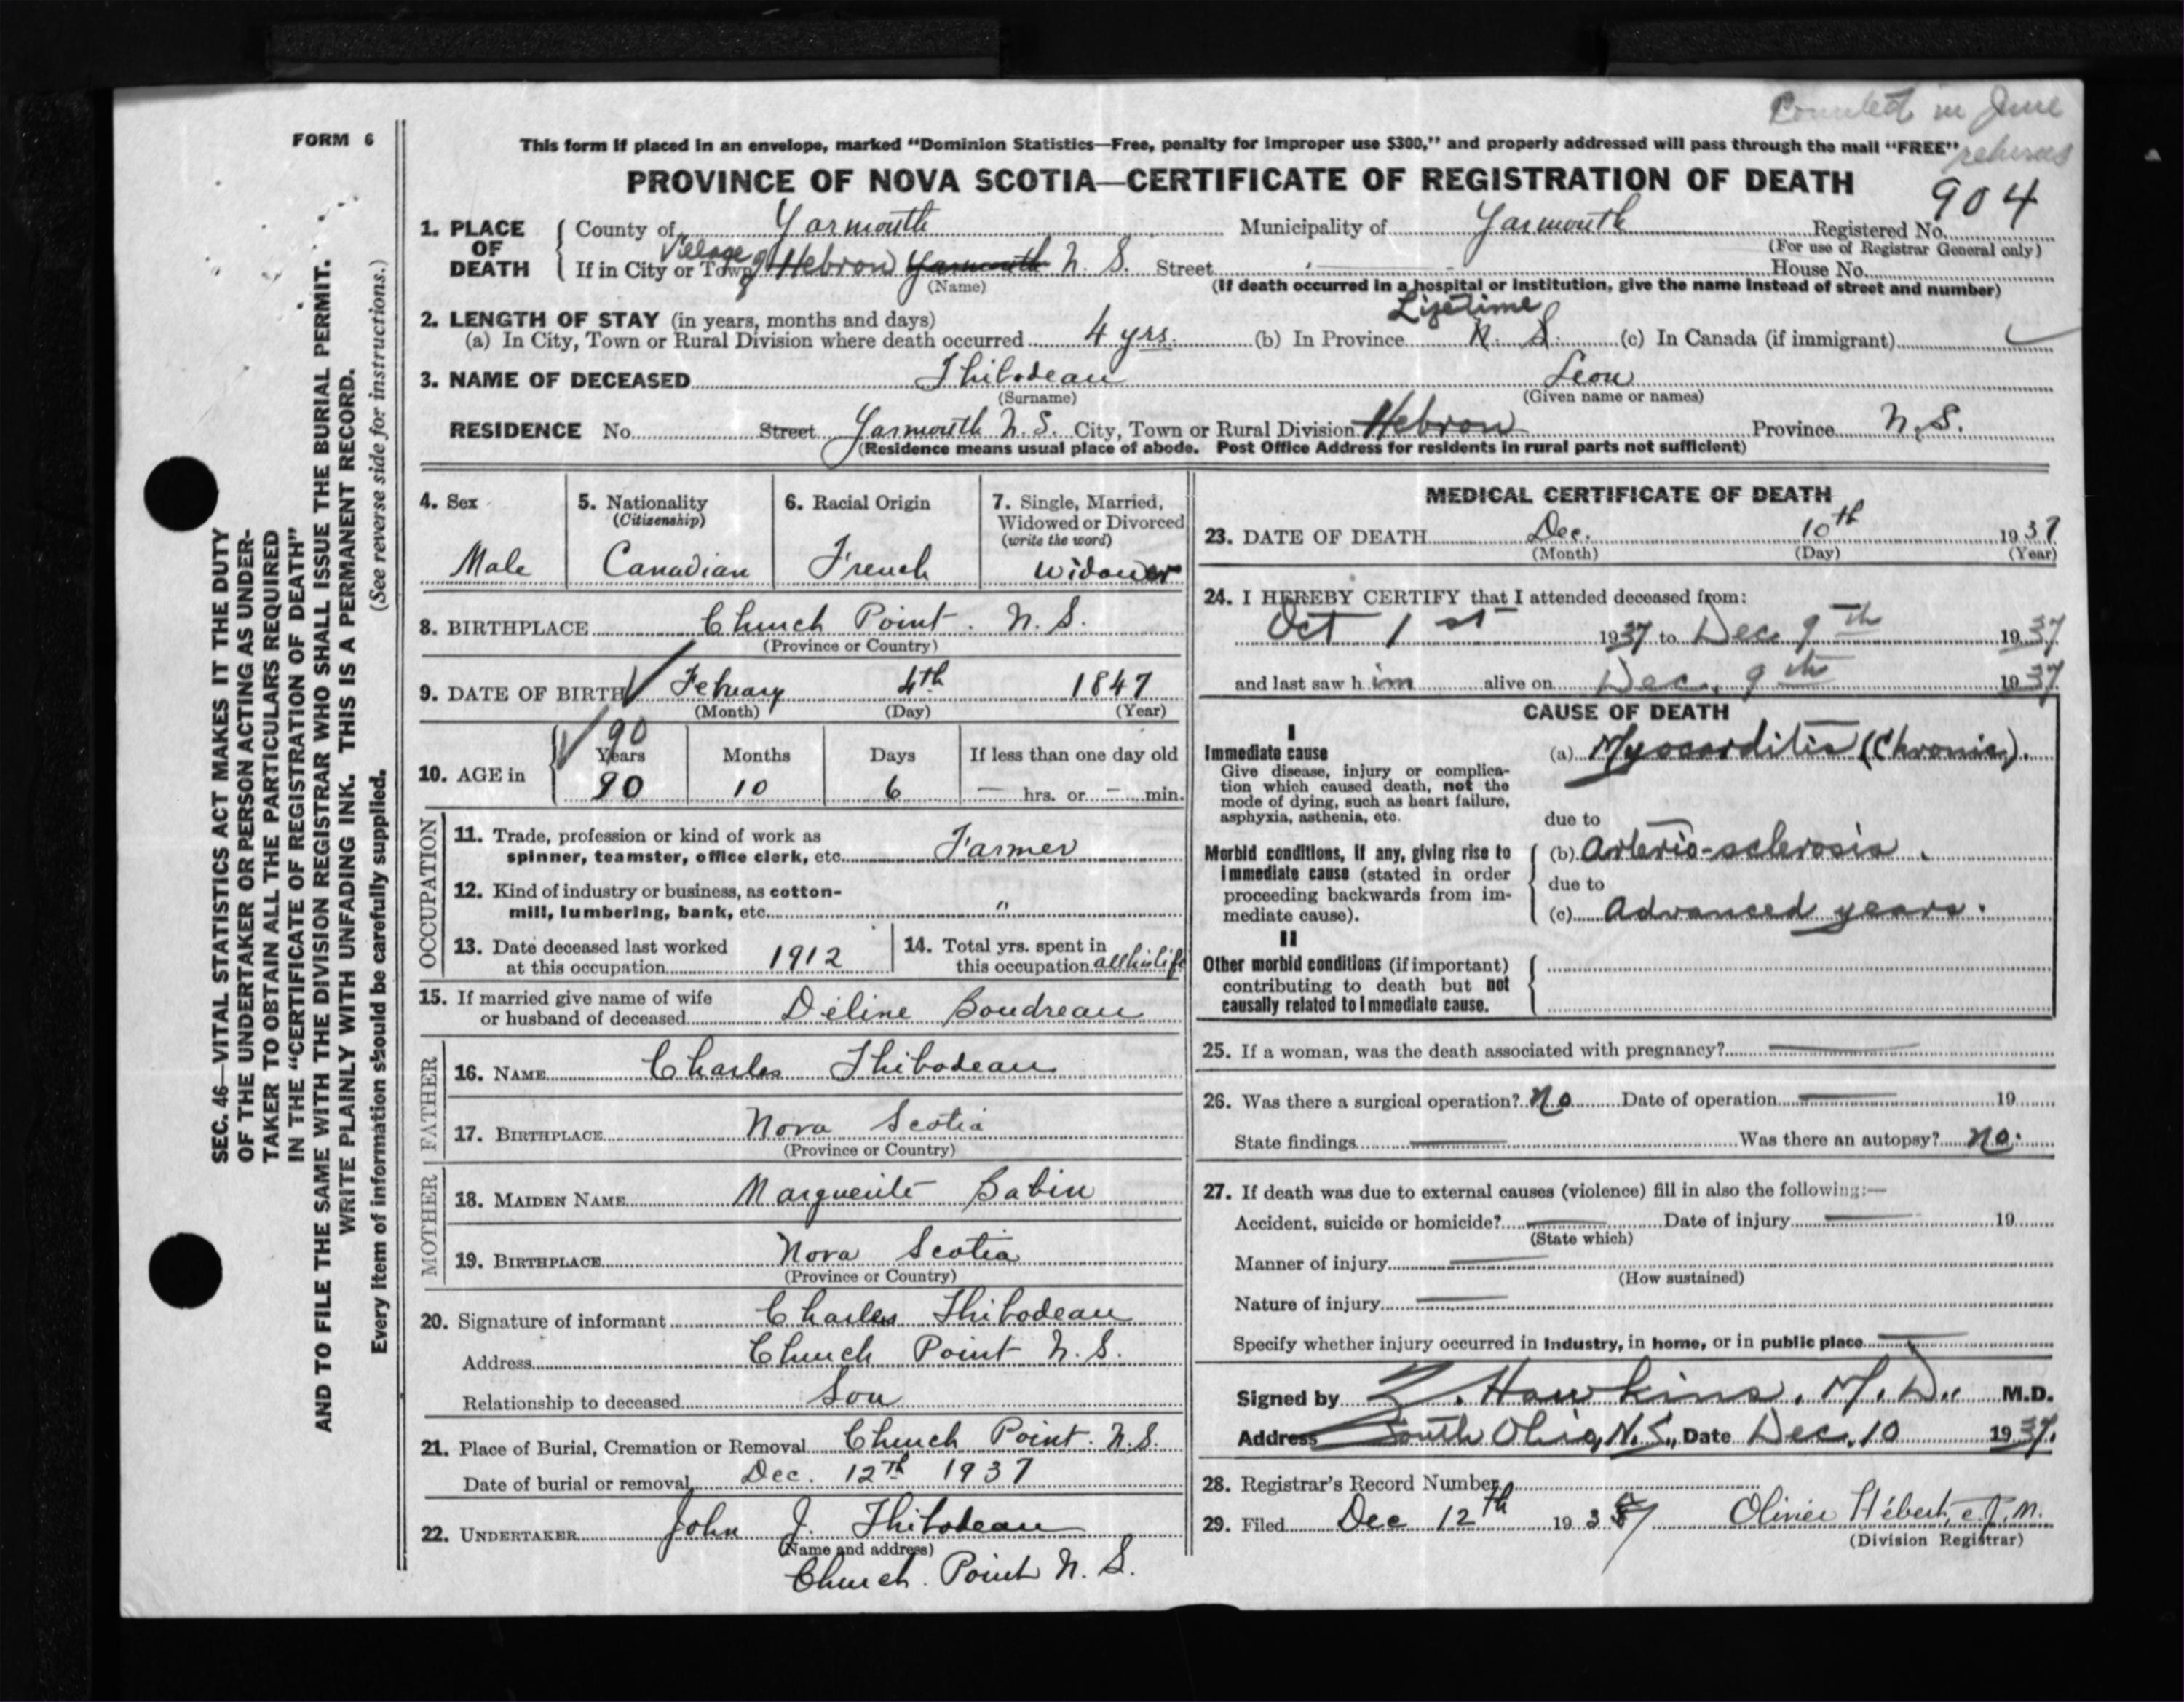 Counted in June
returns
FORM 6
This form if placed in an envelope, marked "Dominion Statistics—Free, penalty for improper use $300," and properly addressed will pass through the mail "FREE"
PROVINCE OF NOVA SCOTIA—CERTIFICATE OF REGISTRATION OF DEATH
904
1. PLACE OF DEATH { County of Yarmouth Municipality of Yarmouth Registered No.
(For use of Registrar General only)
If in City or Town Village of Hebron Yarmouth N. S. Street House No.
(Name) (If death occurred in a hospital or institution, give the name instead of street and number)
2. LENGTH OF STAY (in years, months and days) Lifetime
(a) In City, Town or Rural Division where death occurred 4 yrs. (b) In Province N. S. (c) In Canada (if immigrant)
3. NAME OF DECEASED Thibodeau Leon
(Surname) (Given name or names)
RESIDENCE No. Street Yarmouth N. S. City, Town or Rural Division Hebron Province N. S.
(Residence means usual place of abode. Post Office Address for residents in rural parts not sufficient)
4. Sex
Male
5. Nationality
(Citizenship)
Canadian
6. Racial Origin
French
7. Single, Married,
Widowed or Divorced
(write the word)
Widower
8. BIRTHPLACE Church Point. N. S.
(Province or Country)
9. DATE OF BIRTH Febuary 4th 1847
(Month) (Day) (Year)
90
10. AGE in { Years Months Days If less than one day old
90 10 6 — hrs. or — min.
OCCUPATION
11. Trade, profession or kind of work as
spinner, teamster, office clerk, etc. Farmer
12. Kind of industry or business, as cotton-
mill, lumbering, bank, etc. "
13. Date deceased last worked
at this occupation 1912
14. Total yrs. spent in
this occupation all his life
15. If married give name of wife
or husband of deceased Déline Boudreau
FATHER
16. NAME Charles Thibodeau
17. BIRTHPLACE Nova Scotia
(Province or Country)
MOTHER
18. MAIDEN NAME Marguerite Babin
19. BIRTHPLACE Nova Scotia
(Province or Country)
20. Signature of informant Charles Thibodeau
Address Church Point N. S.
Relationship to deceased Son
21. Place of Burial, Cremation or Removal Church Point. N. S.
Date of burial or removal Dec. 12th 1937
22. UNDERTAKER John J. Thibodeau
(Name and address)
Church. Point N. S.
MEDICAL CERTIFICATE OF DEATH
23. DATE OF DEATH Dec. 10th 1937
(Month) (Day) (Year)
24. I HEREBY CERTIFY that I attended deceased from:
Oct 1st 1937 to Dec 9th 1937
and last saw h im alive on Dec. 9th 1937
CAUSE OF DEATH
I
Immediate cause (a) Myocarditis (Chronic).
Give disease, injury or complica-
tion which caused death, not the
mode of dying, such as heart failure,
asphyxia, asthenia, etc.
due to
Morbid conditions, if any, giving rise to
immediate cause (stated in order
proceeding backwards from im-
mediate cause).
(b) Arterio-sclerosis.
due to
(c) Advanced years.
II
Other morbid conditions (if important)
contributing to death but not
causally related to immediate cause.
25. If a woman, was the death associated with pregnancy?
26. Was there a surgical operation? No Date of operation 19
State findings Was there an autopsy? No.
27. If death was due to external causes (violence) fill in also the following:—
Accident, suicide or homicide? Date of injury 19
(State which)
Manner of injury
(How sustained)
Nature of injury
Specify whether injury occurred in industry, in home, or in public place
Signed by Z. Hawkins. M. D. M.D.
Address South Ohio, N. S., Date Dec. 10 1937.
28. Registrar's Record Number
29. Filed Dec 12th 1937 Olivier Hébert, e.J.M.
(Division Registrar)
SEC. 46—VITAL STATISTICS ACT MAKES IT THE DUTY
OF THE UNDERTAKER OR PERSON ACTING AS UNDER-
TAKER TO OBTAIN ALL THE PARTICULARS REQUIRED
IN THE "CERTIFICATE OF REGISTRATION OF DEATH"
AND TO FILE THE SAME WITH THE DIVISION REGISTRAR WHO SHALL ISSUE THE BURIAL PERMIT.
WRITE PLAINLY WITH UNFADING INK. THIS IS A PERMANENT RECORD.
Every item of information should be carefully supplied. (See reverse side for instructions.)